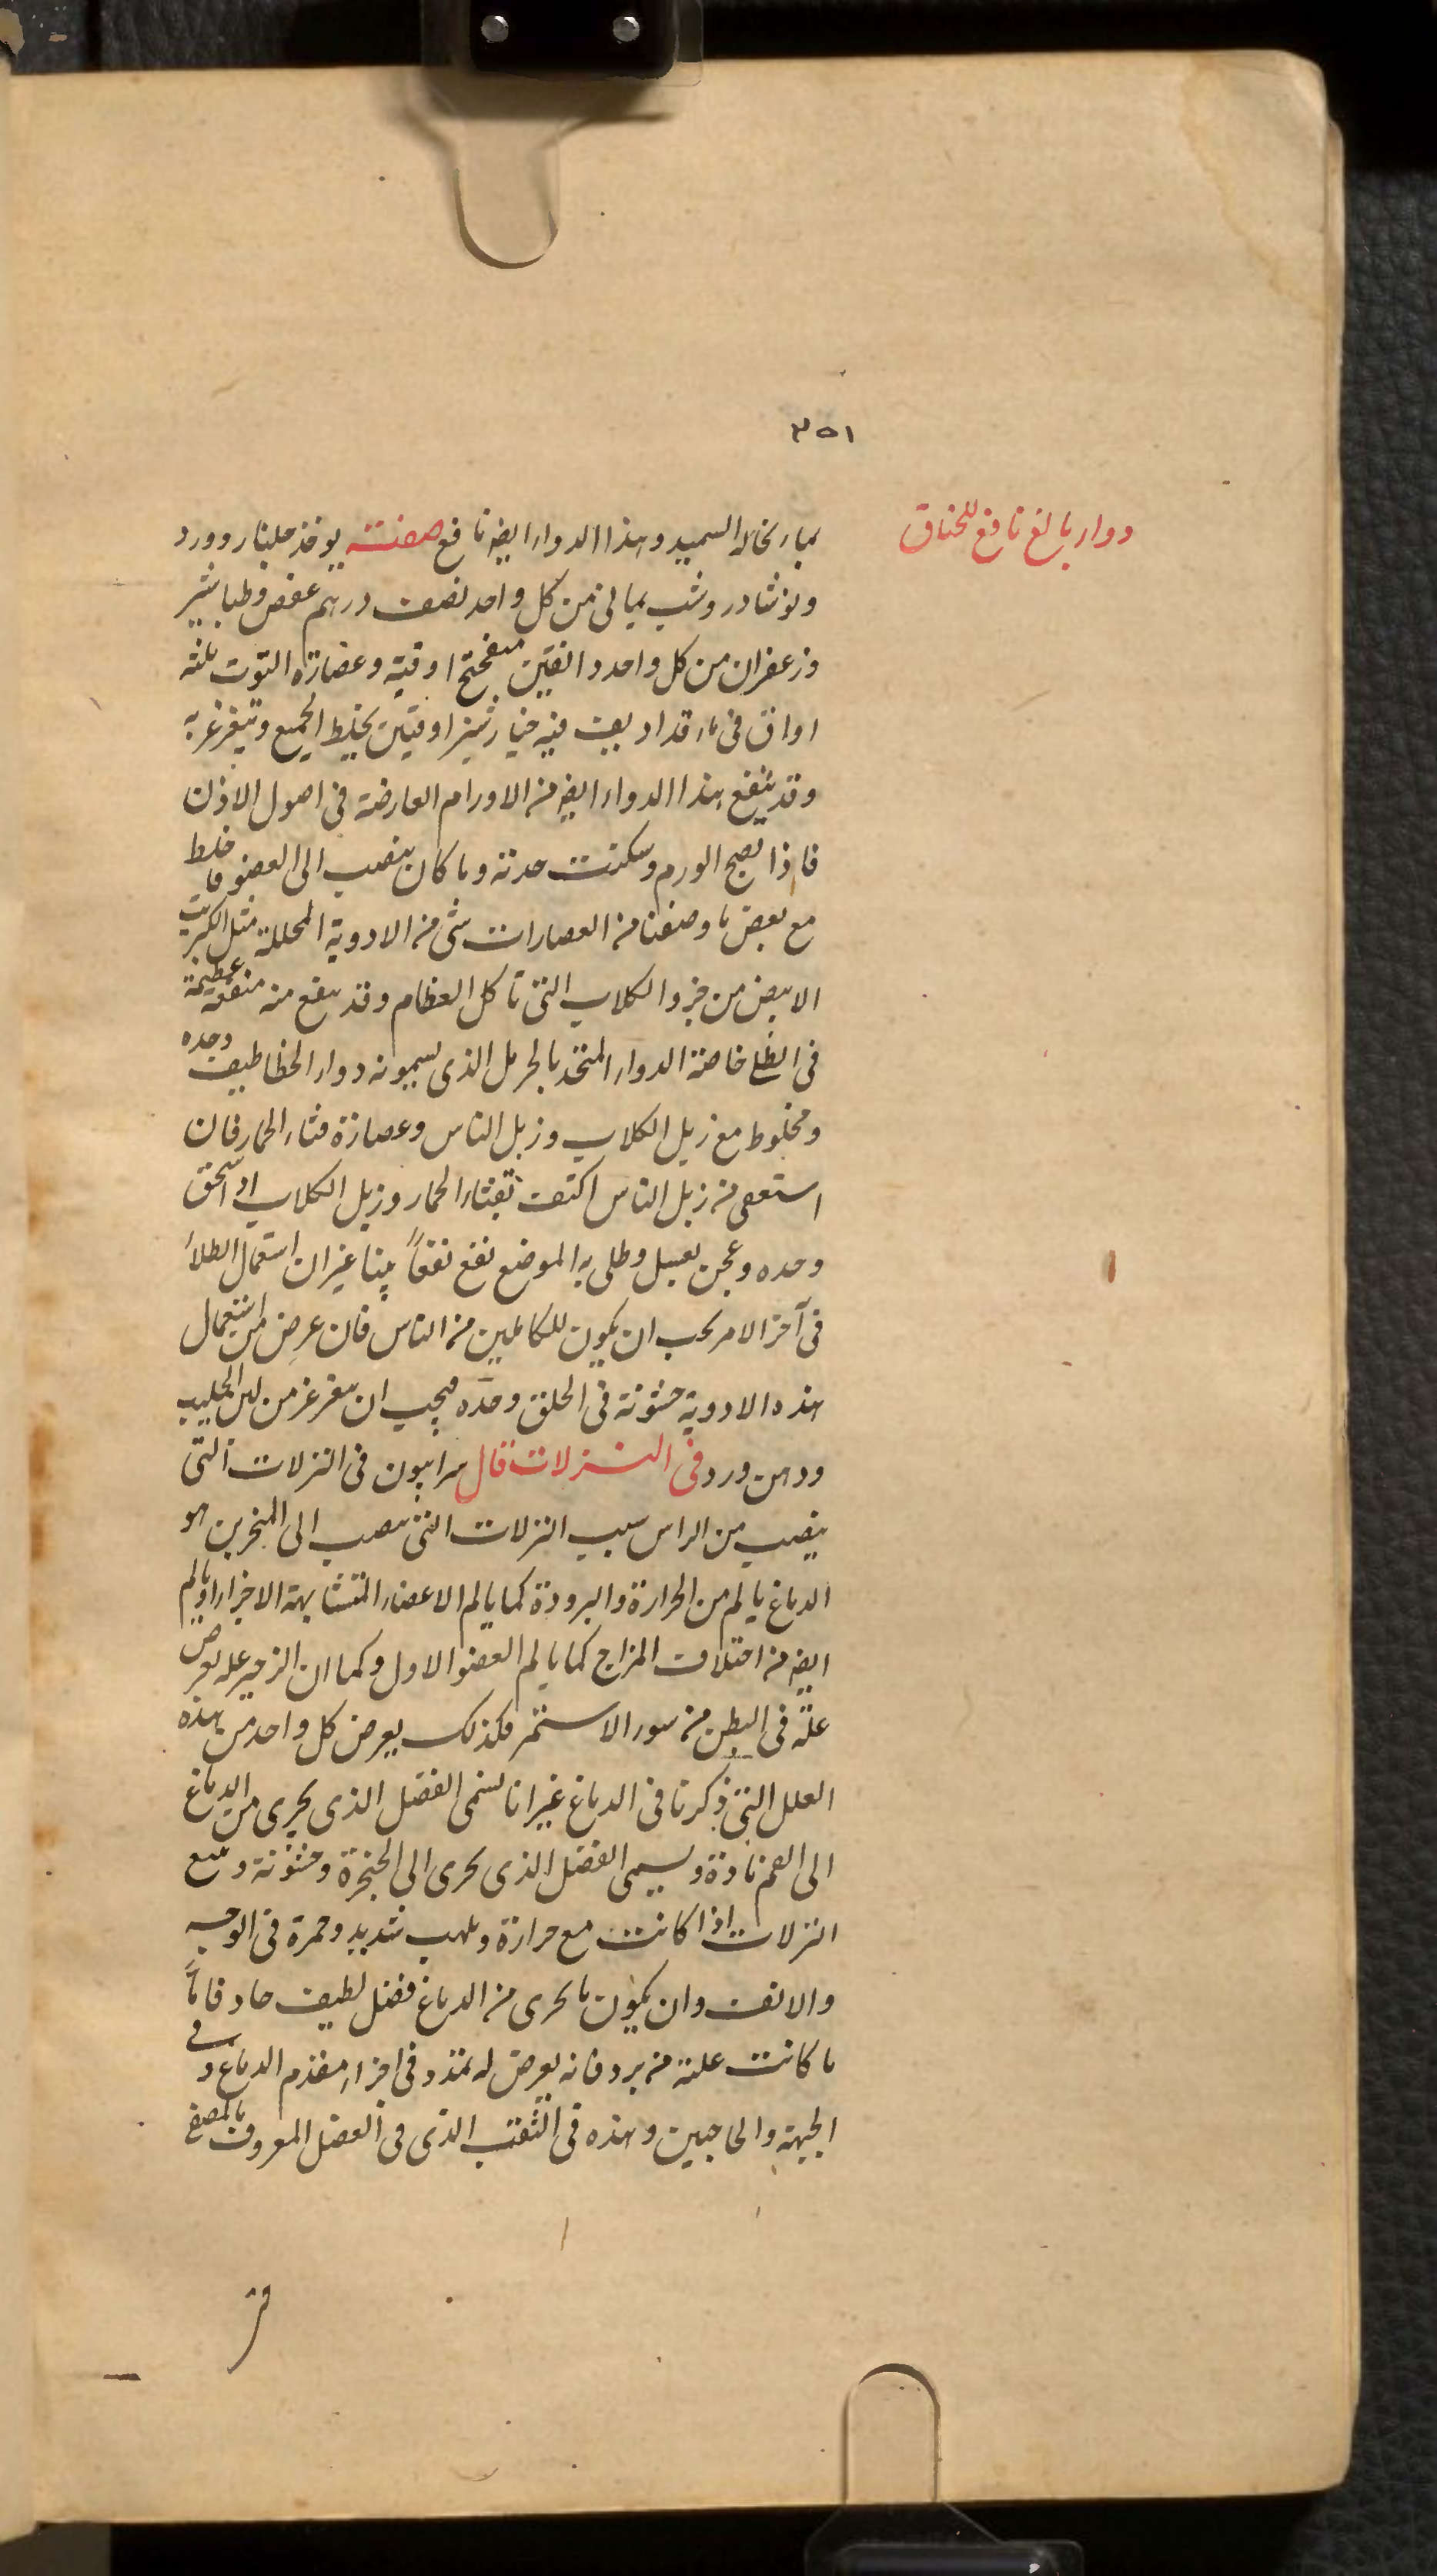 ٣٥١
دواء بالغ نافع للخناق
بماء نخالة السميد وهذا الدواء ايضه نافع صفته يوخذ جلنار وورد
ونوشادر وشب يمانى من كل واحد نصف درهم عفص وطباشير
وزعفران من كل واحد دانقين ميفختج اوقية وعصارة التوت ثلثه
اواق فى ماء قد اديف فيه خيارشنبر اوقيتين يخلط الجميع ويتغرغر به
وقد ينفع هذا الدواء ايضه من الاورام العارضة فى اصول الاذن
فاذا نضج الورم وسكنت حدته وما كان ينصب الى العضو فاخلط
مع بعض ما وصفنا من العصارات شى من الادوية المحللة مثل الكبريت
الابيض من خرو الكلاب التى تاكل العظام وقد ينفع منه منفعة عظيمة
فى الطلى خاصة الدواء المتخذ بالحرمل الذى يسمونه دواء الخطاطيف وحده
ومخلوط مع زبل الكلاب وزبل الناس وعصارة قثاء الحمار فان
استعفى من زبل الناس اكتف بقثاء الحمار وزبل الكلاب اذا سحق
وحده وعجن بعسل وطلى به الموضع نفع نفعاً بينا غير ان استعمال الطلاء
فى آخر الامر يجب ان يكون للكاملين من الناس فان عرض من استعمال
هذه الادوية خشونة فى الحلق وحده فيجب ان يتغرغر من لبن الحليب
ودهن ورد فى النزلات قال سرابيون فى النزلات التى
ينصب من الراس سبب النزلات التى ينصب الى المنخرين هو
الدماغ يالم من الحرارة والبرودة كما يالم الاعضاء المتشابهة الاجزاء او يالم
ايضه من اختلاف المزاج كما يالم العضو الاول وكما ان الزحير عله يعرض
علة فى البطن من سوء الاستمر فكذلك يعرض كل واحد من هذه
العلل التى ذكرنا فى الدماغ غير انا نسمى الفضل الذى يجرى من الدماغ
الى الفم نازلة ويسمى الفضل الذى يجرى الى الحنجرة وخشونة وتتبع
النزلات اذا كانت مع حرارة وتلهب شديد وحمرة فى الوجه
والانف وان يكون ما يجرى من الدماغ فضل لطيف حاد فاماً
ما كانت علته من برد فانه يعرض له تمدد فى اجزاء مقدم الدماغ وفى
الجبهة والحاجبين وهذه فى الثقب الذى فى العضل المعروف بالمصفى